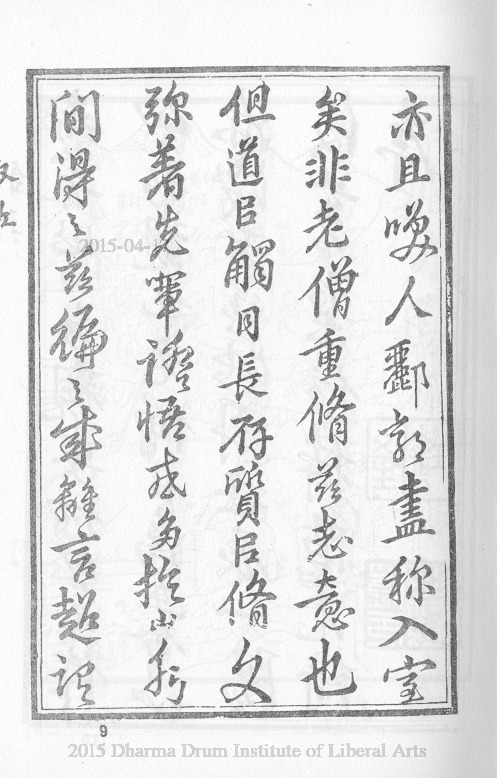 亦且喚人酈郭盡称入室
矣非老僧重脩茲志意也
但道以觸目長存質以脩文
弥著先輩證悟或多於山水
間得之茲編之成雖言超
9
2015-04-1
2015 Dharma Drum Institute of Liberal Arts